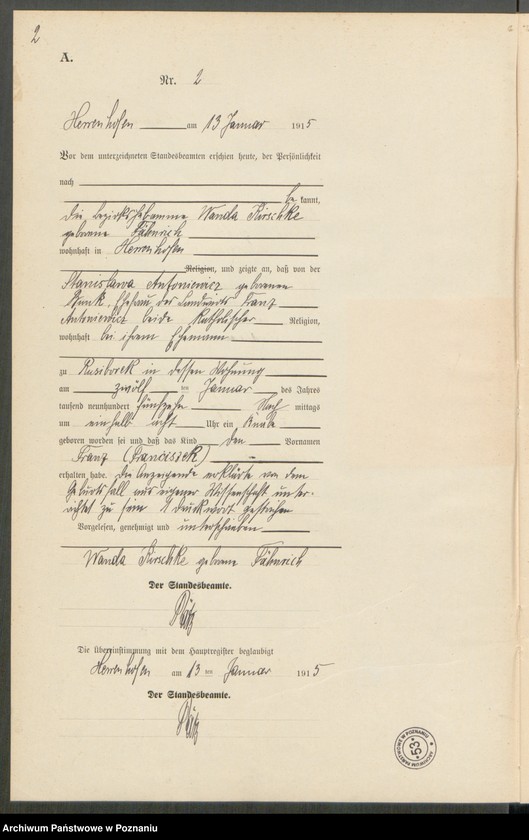 2
A.
Nr. 2
Herrenhofen am 13 Januar 1915
Vor dem unterzeichneten Standesbeamten erschien heute, der Persönlichkeit
nach
be kannt,
die Bezirkshebamme Wanda Kirschke
geborene Fähnrich
wohnhaft in Herrenhofen
Religion, und zeigte an, daß von der
Stanislawa Antoniewicz geborenen
Ehefrau des Landwirts Franz
Antoniewicz beide katholischer Religion,
wohnhaft bei ihrem Ehemann
zu Rusiborek in dessen Wohnung
am zwölften Januar des Jahres
tausend neunhundert fünfzehn Nach mittags
um einhalb acht Uhr ein Knabe
geboren worden sei und daß das Kind den Vornamen
Franz (Franciszek)
erhalten habe. Die Anzeigende erklärte von dem
Geburtsfall aus eigener Wissenschaft unter-
richtet zu sein 1 Druckwort gestrichen
Vorgelesen, genehmigt und unterschrieben
Wanda Kirschke geborene Fähnrich
Der Standesbeamte.
Die Übereinstimmung mit dem Hauptregister beglaubigt
Herrenhofen am 13 ten Januar 1915
Der Standesbeamte.
ARCHIWUM PAŃSTWOWE W POZNANIU
53
Archiwum Państwowe w Poznaniu